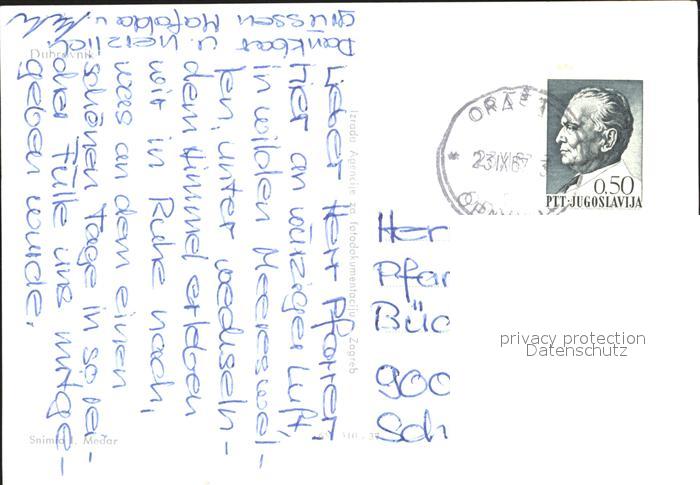 Dubrovnik
Lieber Herr Pfarrer
hier an würziger Luft,
in wilden Meereswel-
len, unter wechseln-
dem Himmel erleben
wir in Ruhe nach,
was an dem einen
schönen Tage in so rei-
cher Fülle uns mitge-
geben wurde.
Dankbar u. herzlich
grüssen Mafalda u.
Snimio I. Medar
Izrada Agencije za fotodokumentaciju Zagreb
ORAŠ
23 IX 67
0.50
PTT·JUGOSLAVIJA
Her
Pfar
Büc
900
Sch
privacy protection
Datenschutz